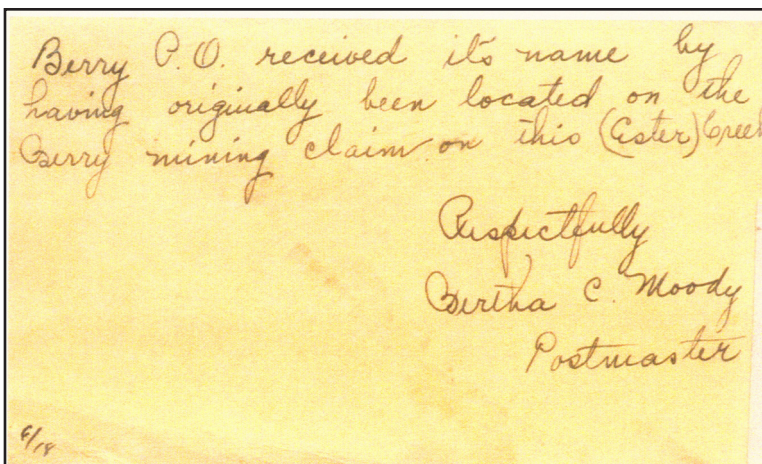 Berry P.O. received its name by
having originally been located on the
Berry mining claim on this (Ester) Creek
Respectfully
Bertha C. Moody
Postmaster
6/18